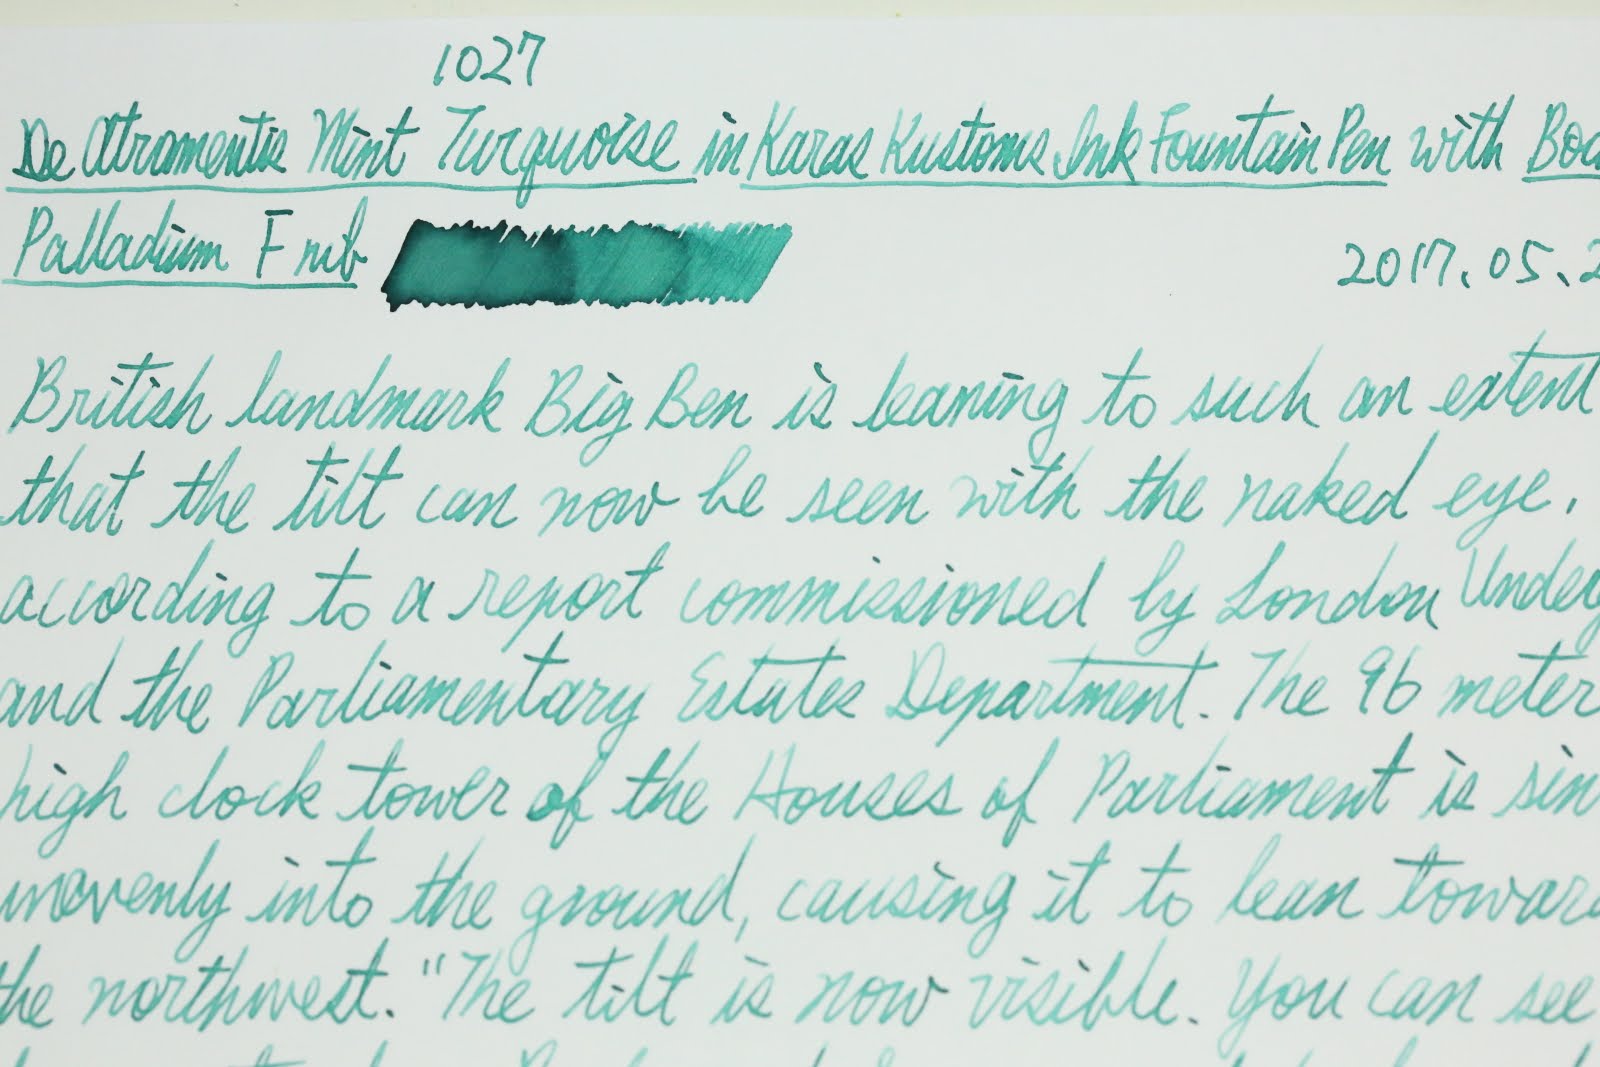 1027
De Atramentis Mint Turquoise in Karas Kustoms Ink Fountain Pen with
Palladium F nib
2017.05.2
British landmark Big Ben is leaning to such an extent
that the tilt can now be seen with the naked eye,
according to a report commissioned by London
and the Parliamentary Estates Department. The 96 meter
high clock tower of the Houses of Parliament is
into the ground, causing it to lean
the northwest. "The tilt is now visible. You can see